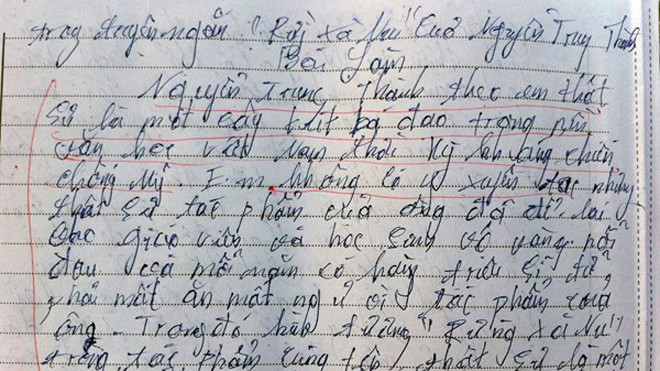 trog truyện ngắn "Rừg xà Nu" của Nguyễn Trug Thành
Bài Làm
Nguyễn Trung Thành theo em thật
sự là một cây bút bá đạo trong nền
văn học việt Nam thời kỳ kháng chiến
chống Mỹ. Em không có ý xuyên tạc nhưng
thật sự tác phẩm của ông đã để lại
cho giáo viên và học sinh vô vàng nỗi
đau và mỗi năm có hàng triệu sĩ tử
phải mất ăn mất ngủ vì tác phẩm của
ông. Trong đó hình tượng "Rừng xà Nu"
trong tác phẩm cùng tên thật sự là một